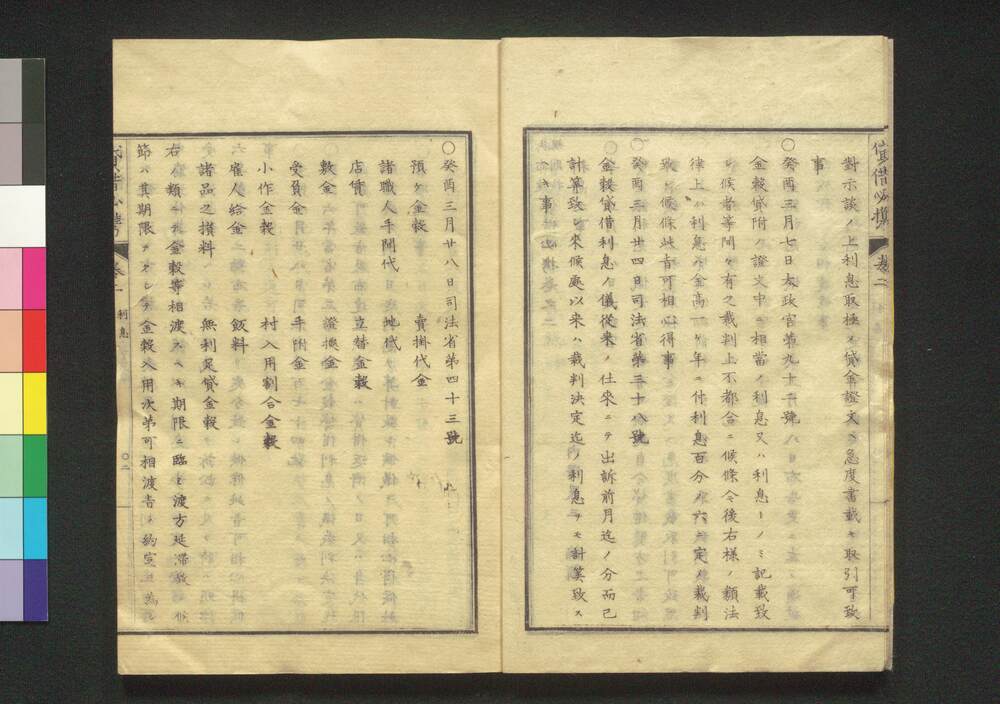 貸借必携 巻二
對示談ノ上利息取極メ貸金證文ヘ急度書載セ取引可致
事
〇癸酉三月七日太政官第九十二號
金穀貸附ノ證文中ニ相當ノ利息又ハ利息トノミ記載致
シ候者等間々有之裁判上不都合ニ候條今後右様ノ類法
律上ノ利息ハ金高一ケ年ニ付利息百分ノ六ニ定メ裁判
致シ候條此旨可相心得事
〇癸酉三月廿四日司法省第三十八號
金穀貸借利息ノ儀從來ノ仕來ニテ出訴前月迄ノ分而已
計算致シ來候處以来ハ裁判決定迄ノ利息ヲモ計算致ス
ヘキ事
〇癸酉三月廿八日司法省第四十三號
預ケ金穀 賣掛代金
諸職人手間代 地代
店賃 立替金穀
敷金 證據金
受負金 手附金
小作金穀 村入用割合金穀
雇人給金 飯料
諸品之損料 無利足貸金穀
右ノ類其金穀等相渡スヘキ期限ニ臨ミ渡方延滞致シ候
節ハ其期限ヲ
金穀入用次第可相渡旨
貸借必携 巻二 利息 〇二